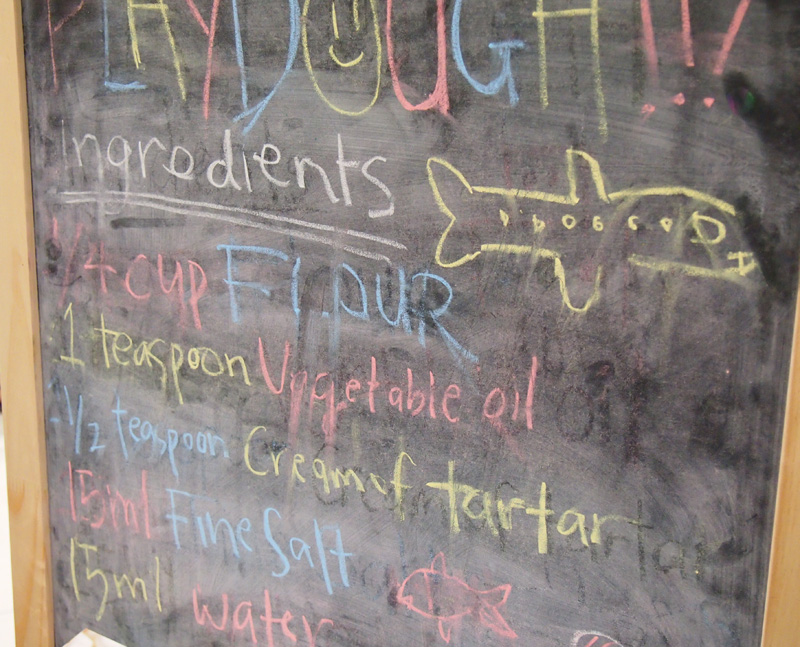 PLAYDOUGH!!!
Ingredients
1/4 cup FLOUR
1 teaspoon Vegetable oil
1/2 teaspoon Cream of tartar
15ml Fine Salt
15ml water